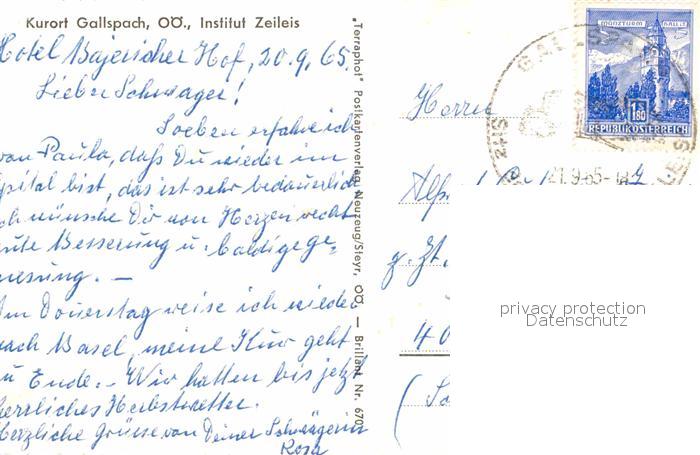 Kurort Gallspach, OÖ., Institut Zeileis
Hotel Bajericher Hof, 20.9.65.
Lieber Schwager!
Soeben erfahre ich
von Paula, daß Du wieder im
Spital bist, das ist sehr bedauerlich
ich wünsche Dir von Herzen recht
gute Besserung u. baldige ge-
nesung. —
Am Donerstag reise ich wieder
nach Basel, meine Kur geht
zu Ende. - Wir hatten bis jetzt
herrliches Herbstwetter.
Herzliche Grüsse von Deiner Schwägerin
Rosa
„Terraphot" Postkartenverlag, Neuzeug/Steyr, OÖ — Brillant Nr. 670
Herrn
z. Zt.
40
MÜNZTURM HALL I.T.
5 5
1.80
REPUBLIK ÖSTERREICH
21.9.65-18
privacy protection
Datenschutz